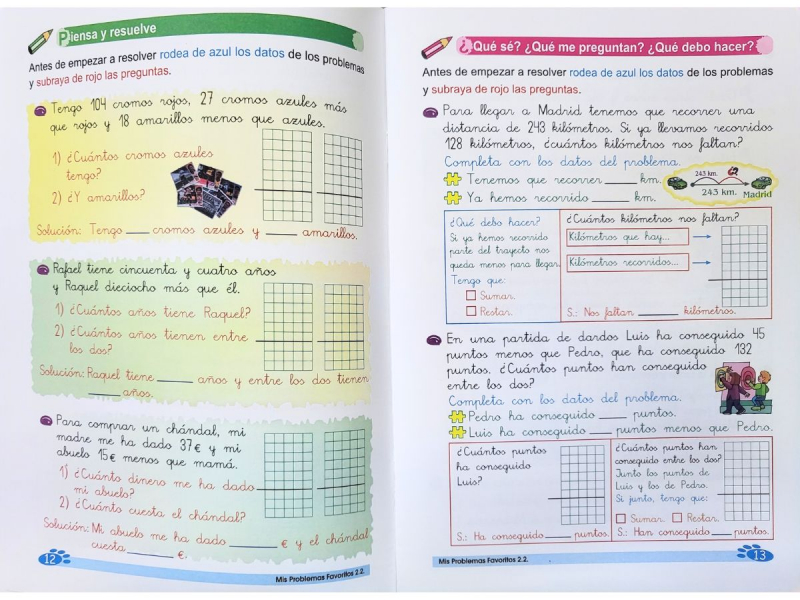 Piensa y resuelve
Antes de empezar a resolver rodea de azul los datos de los problemas
y subraya de rojo las preguntas.
Tengo 104 cromos rojos, 27 cromos azules más
que rojos y 18 amarillos menos que azules.
1) ¿Cuántos cromos azules
tengo?
2) ¿Y amarillos?
Solución: Tengo ____ cromos azules y ____ amarillos.
Rafael tiene cincuenta y cuatro años
y Raquel dieciocho más que él.
1) ¿Cuántos años tiene Raquel?
2) ¿Cuántos años tienen entre
los dos?
Solución: Raquel tiene ____ años y entre los dos tienen
____ años.
Para comprar un chándal, mi
madre me ha dado 37€ y mi
abuelo 15€ menos que mamá.
1) ¿Cuánto dinero me ha dado
mi abuelo?
2) ¿Cuánto cuesta el chándal?
Solución: Mi abuelo me ha dado ____ € y el chándal
cuesta ____ €.
12
Mis Problemas Favoritos 2.2.
¿Qué sé? ¿Qué me preguntan? ¿Qué debo hacer?
Antes de empezar a resolver rodea de azul los datos de los problemas
y subraya de rojo las preguntas.
Para llegar a Madrid tenemos que recorrer una
distancia de 243 kilómetros. Si ya llevamos recorridos
128 kilómetros, ¿cuántos kilómetros nos faltan?
Completa con los datos del problema.
Tenemos que recorrer ____ km.
Ya hemos recorrido ____ km.
243 km.
243 km.
Madrid
¿Qué debo hacer?
Si ya hemos recorrido
parte del trayecto nos
queda menos para llegar.
Tengo que:
Sumar.
Restar.
¿Cuántos kilómetros nos faltan?
Kilómetros que hay...
Kilómetros recorridos...
S.: Nos faltan ____ kilómetros.
En una partida de dardos Luis ha conseguido 45
puntos menos que Pedro, que ha conseguido 132
puntos. ¿Cuántos puntos han conseguido
entre los dos?
Completa con los datos del problema.
Pedro ha conseguido ____ puntos.
Luis ha conseguido ____ puntos menos que Pedro.
¿Cuántos puntos
ha conseguido
Luis?
S.: Ha conseguido ____ puntos.
¿Cuántos puntos han
conseguido entre los dos?
Junto los puntos de
Luis y los de Pedro.
Si junto, tengo que:
Sumar. Restar.
S.: Han conseguido ____ puntos.
Mis Problemas Favoritos 2.2.
13